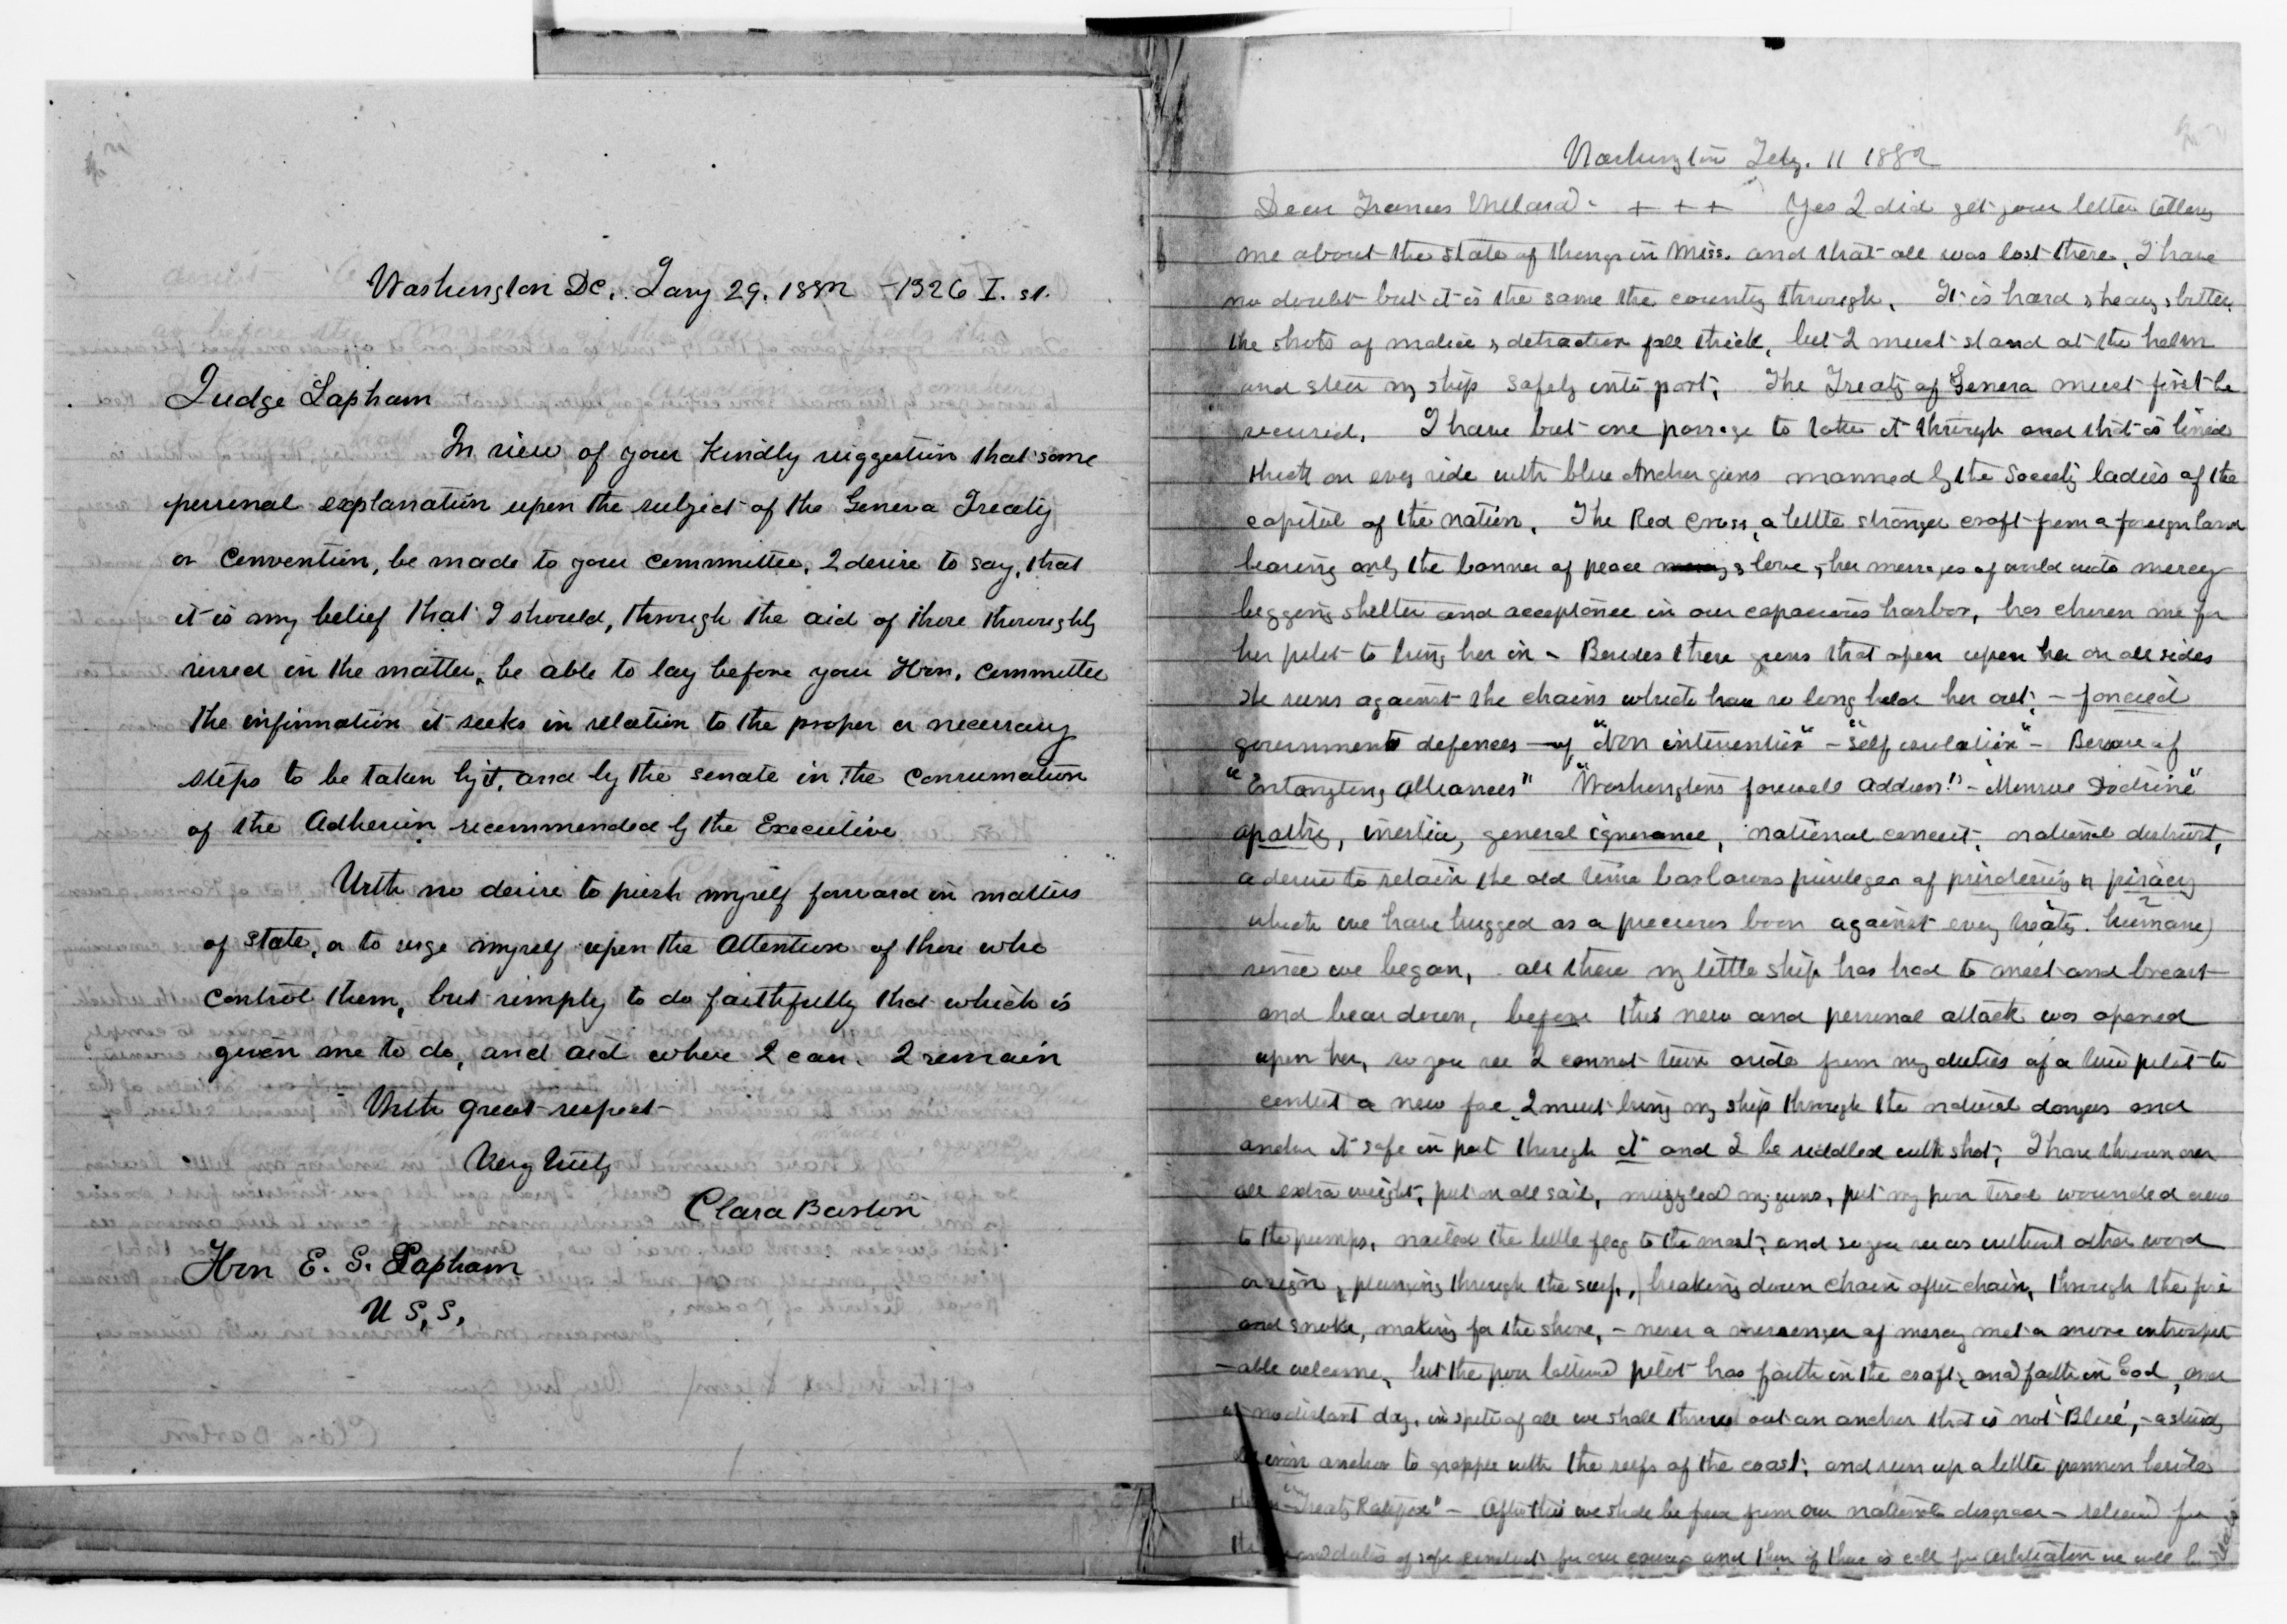 Washington DC. Jany 29. 1882 - 1326 I. st.
Judge Lapham
In view of your kindly suggestion that some
personal explanation upon the subject of the Geneva Treaty
or Convention, be made to your committee, I desire to say, that
it is my belief that I should, through the aid of those thoroughly
versed in the matter, be able to lay before your Hon. Committee
the information it seeks in relation to the proper or necessary
steps to be taken by it, and by the Senate in the Consumation
of the Adhesion recommended by the Executive
With no desire to push myself forward in matters
of State, or to urge myself upon the Attention of those who
control them, but simply to do faithfully that which is
given me to do, and aid where I can. I remain
With great respect
Very truly
Clara Barton
Hon E. S. Lapham
U. S. S.
Washington Feby. 11 1882
Dear Frances Willard - + + + Yes I did get your letter telling
me about the state of things in Miss. and that all was lost there, I have
no doubt but it is the same the country through. It is hard & heavy & bitter,
the shots of malice & detraction fall thick, but I must stand at the helm
and steer my ship safely into port, The Treaty of Geneva must first be
secured, I have but one passage to take it through and that is lined
thick on every side with blue Anchor guns manned by the Society ladies of the
capitol of the nation. The Red Cross, a little stranger craft from a foreign land
bearing only the banner of peace & love, & her messages of world wide mercy
begging shelter and acceptance in our capacious harbor, has chosen me for
her pilot to bring her in - Besides these guns that open upon her on all sides
She runs against the chains which have so long held her out, - fancied
government defences - of "Non intervention" - "Self isolation" - Beware of
"Entangling Alliances" "Washingtons farewell Address!" - "Monroe Doctrine"
apathy, inertia, general ignorance, national conceit, national distrust,
a desire to retain the old time barbarous privileges of privateering & piracy
which we have hugged as a precious boon against every treaty. humane)
since we began, all these my little ship has had to meet and breast
and bear down, before this new and personal attack was opened
upon her, so you see I cannot turn aside from my duties of a true pilot to
combat a new foe, I must bring my ship through the natural dangers and
anchor it safe in port though it and I be riddled with shot, I have thrown over
all extra weight, put on all sail, muzzled my guns, put my poor tired wounded crew
to the pumps, nailed the little flag to the mast, and so you see us without other word
or sign, plunging through the surf, breaking down chain after chain, through the fire
and smoke, making for the shore, - never a messenger of mercy met a more inhospit
-able welcome, but the poor battered pilot has faith in the craft, and faith in God, and
no distant day, in spite of all we shall throw out an anchor that is not 'Blue', - a sturdy
iron anchor to grapple with the reefs of the coast, and run up a little pennon beside
"Treaty Ratified" - After this we shall be free from our national disgrace - relieved for
of safe conduct for our and then if there is call for Arbitration we will be